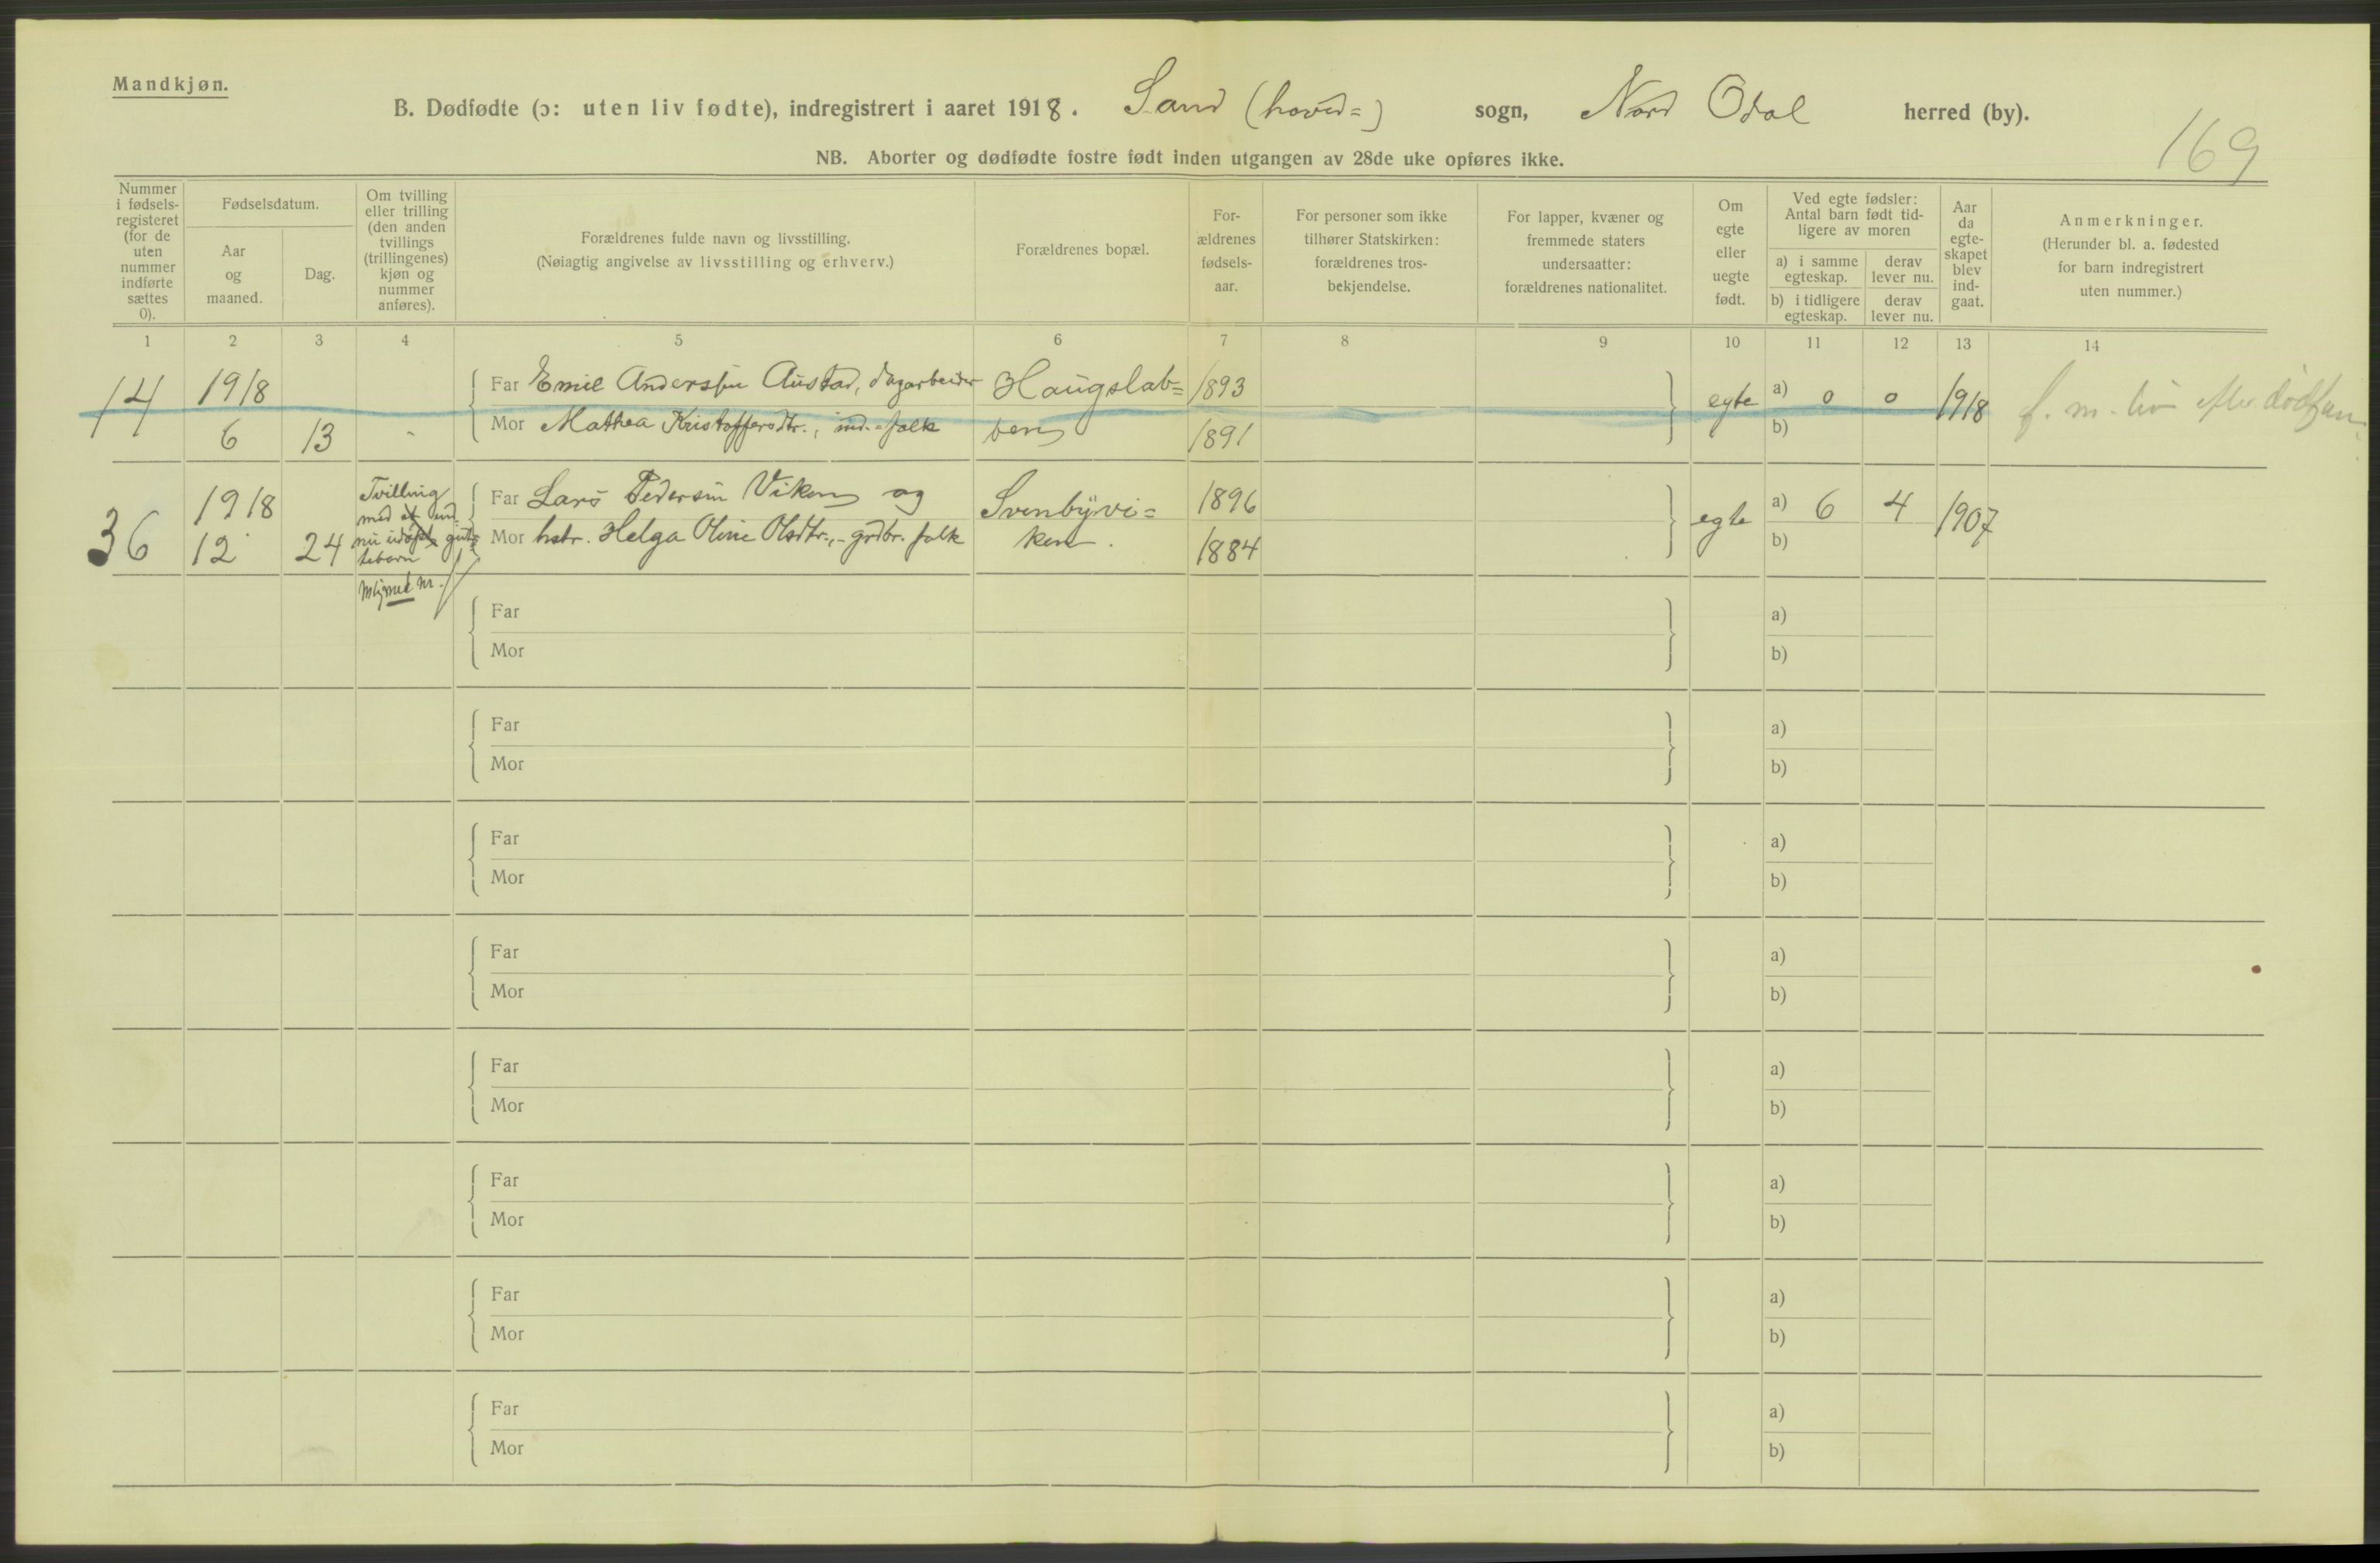 Mandkjøn.
B. Dødfødte (ɔ: uten liv fødte), indregistrert i aaret 1918. Sand (hoved=) sogn, Nord Odal herred (by).
169
NB. Aborter og dødfødte fostre født inden utgangen av 28de uke opføres ikke.
Nummer i fødsels-registeret (for de uten nummer indførte sættes 0).
Fødselsdatum.
Aar og maaned.
Dag.
Om tvilling eller trilling (den anden tvillings (trillingenes) kjøn og nummer anføres).
Forældrenes fulde navn og livsstilling.
(Nøiagtig angivelse av livsstilling og erhverv.)
Forældrenes bopæl.
For-ældrenes fødsels-aar.
For personer som ikke tilhører Statskirken: forældrenes tros-bekjendelse.
For lapper, kvæner og fremmede staters undersaatter: forældrenes nationalitet.
Om egte eller uegte født.
Ved egte fødsler: Antal barn født tid-ligere av moren
a) i samme egteskap.
derav lever nu.
b) i tidligere egteskap.
derav lever nu.
Aar da egte-skapet blev ind-gaat.
Anmerkninger.
(Herunder bl. a. fødested for barn indregistrert uten nummer.)
1 2 3 4 5 6 7 8 9 10 11 12 13 14
14 1918 Far Emil Anderssen Austad, dagarbeider Haugslab= 1893 egte a) 0 0 1918 f. m. liv efter dødsan.
6 13 - Mor Mathea Kristoffersdtr., ind.-folk ben 1891 b)
36 1918 Tvilling Far Lars Pedersen Viken og Svenbyvi= 1896 egte a) 6 4 1907
12 24 med et end-
nu udøpt gut-
tebarn
Mor hstr. Helga Oline Olsdtr., - grdbr. folk ken. 1884 b)
Mkjønnet nr. 11
Far a)
Mor b)
Far a)
Mor b)
Far a)
Mor b)
Far a)
Mor b)
Far a)
Mor b)
Far a)
Mor b)
Far a)
Mor b)
Far a)
Mor b)